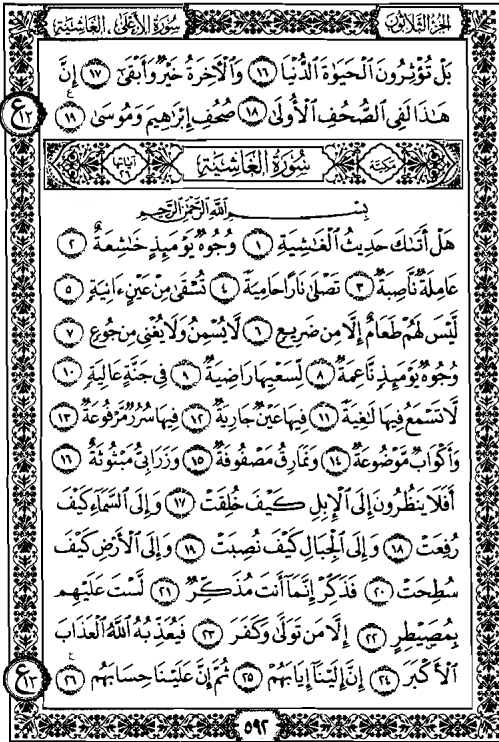 الجزء الثلاثون
سورة الأعلى ، الغاشية
بَلْ تُؤْثِرُونَ الْحَيَوٰةَ الدُّنْيَا ١٦ وَالْأَخِرَةُ خَيْرٌ وَأَبْقَىٰ ١٧ إِنَّ
هَٰذَا لَفِي الصُّحُفِ الْأُولَىٰ ١٨ صُحُفِ إِبْرَاهِيمَ وَمُوسَىٰ ١٩
ع ١٢
مكية
سُورَةُ الْغَاشِيَةِ
آياتها ٢٦
بِسْمِ اللَّهِ الرَّحْمَٰنِ الرَّحِيمِ
هَلْ أَتَىٰكَ حَدِيثُ الْغَٰشِيَةِ ١ وُجُوهٌ يَوْمَئِذٍ خَٰشِعَةٌ ٢
عَامِلَةٌ نَّاصِبَةٌ ٣ تَصْلَىٰ نَارًا حَامِيَةً ٤ تُسْقَىٰ مِنْ عَيْنٍ ءَانِيَةٍ ٥
لَّيْسَ لَهُمْ طَعَامٌ إِلَّا مِن ضَرِيعٍ ٦ لَّا يُسْمِنُ وَلَا يُغْنِي مِن جُوعٍ ٧
وُجُوهٌ يَوْمَئِذٍ نَّاعِمَةٌ ٨ لِّسَعْيِهَا رَاضِيَةٌ ٩ فِي جَنَّةٍ عَالِيَةٍ ١٠
لَّا تَسْمَعُ فِيهَا لَٰغِيَةً ١١ فِيهَا عَيْنٌ جَارِيَةٌ ١٢ فِيهَا سُرُرٌ مَّرْفُوعَةٌ ١٣
وَأَكْوَابٌ مَّوْضُوعَةٌ ١٤ وَنَمَارِقُ مَصْفُوفَةٌ ١٥ وَزَرَابِيُّ مَبْثُوثَةٌ ١٦
أَفَلَا يَنظُرُونَ إِلَى الْإِبِلِ كَيْفَ خُلِقَتْ ١٧ وَإِلَى السَّمَاءِ كَيْفَ
رُفِعَتْ ١٨ وَإِلَى الْجِبَالِ كَيْفَ نُصِبَتْ ١٩ وَإِلَى الْأَرْضِ كَيْفَ
سُطِحَتْ ٢٠ فَذَكِّرْ إِنَّمَا أَنتَ مُذَكِّرٌ ٢١ لَّسْتَ عَلَيْهِم
بِمُصَيْطِرٍ ٢٢ إِلَّا مَن تَوَلَّىٰ وَكَفَرَ ٢٣ فَيُعَذِّبُهُ اللَّهُ الْعَذَابَ
الْأَكْبَرَ ٢٤ إِنَّ إِلَيْنَا إِيَابَهُمْ ٢٥ ثُمَّ إِنَّ عَلَيْنَا حِسَابَهُم ٢٦
ع ١٣
٥٩٢